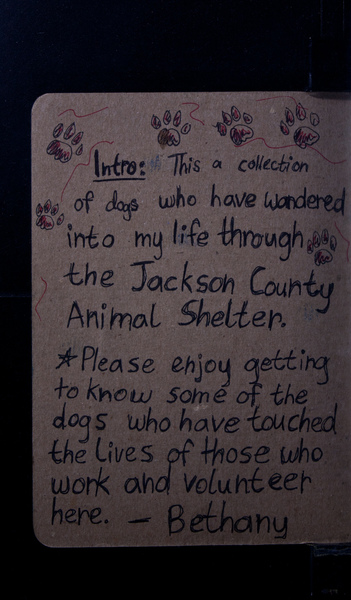 Intro: This a collection
of dogs who have wandered
into my life through
the Jackson County
Animal Shelter.
*Please enjoy getting
to know some of the
dogs who have touched
the lives of those who
work and volunteer
here. — Bethany